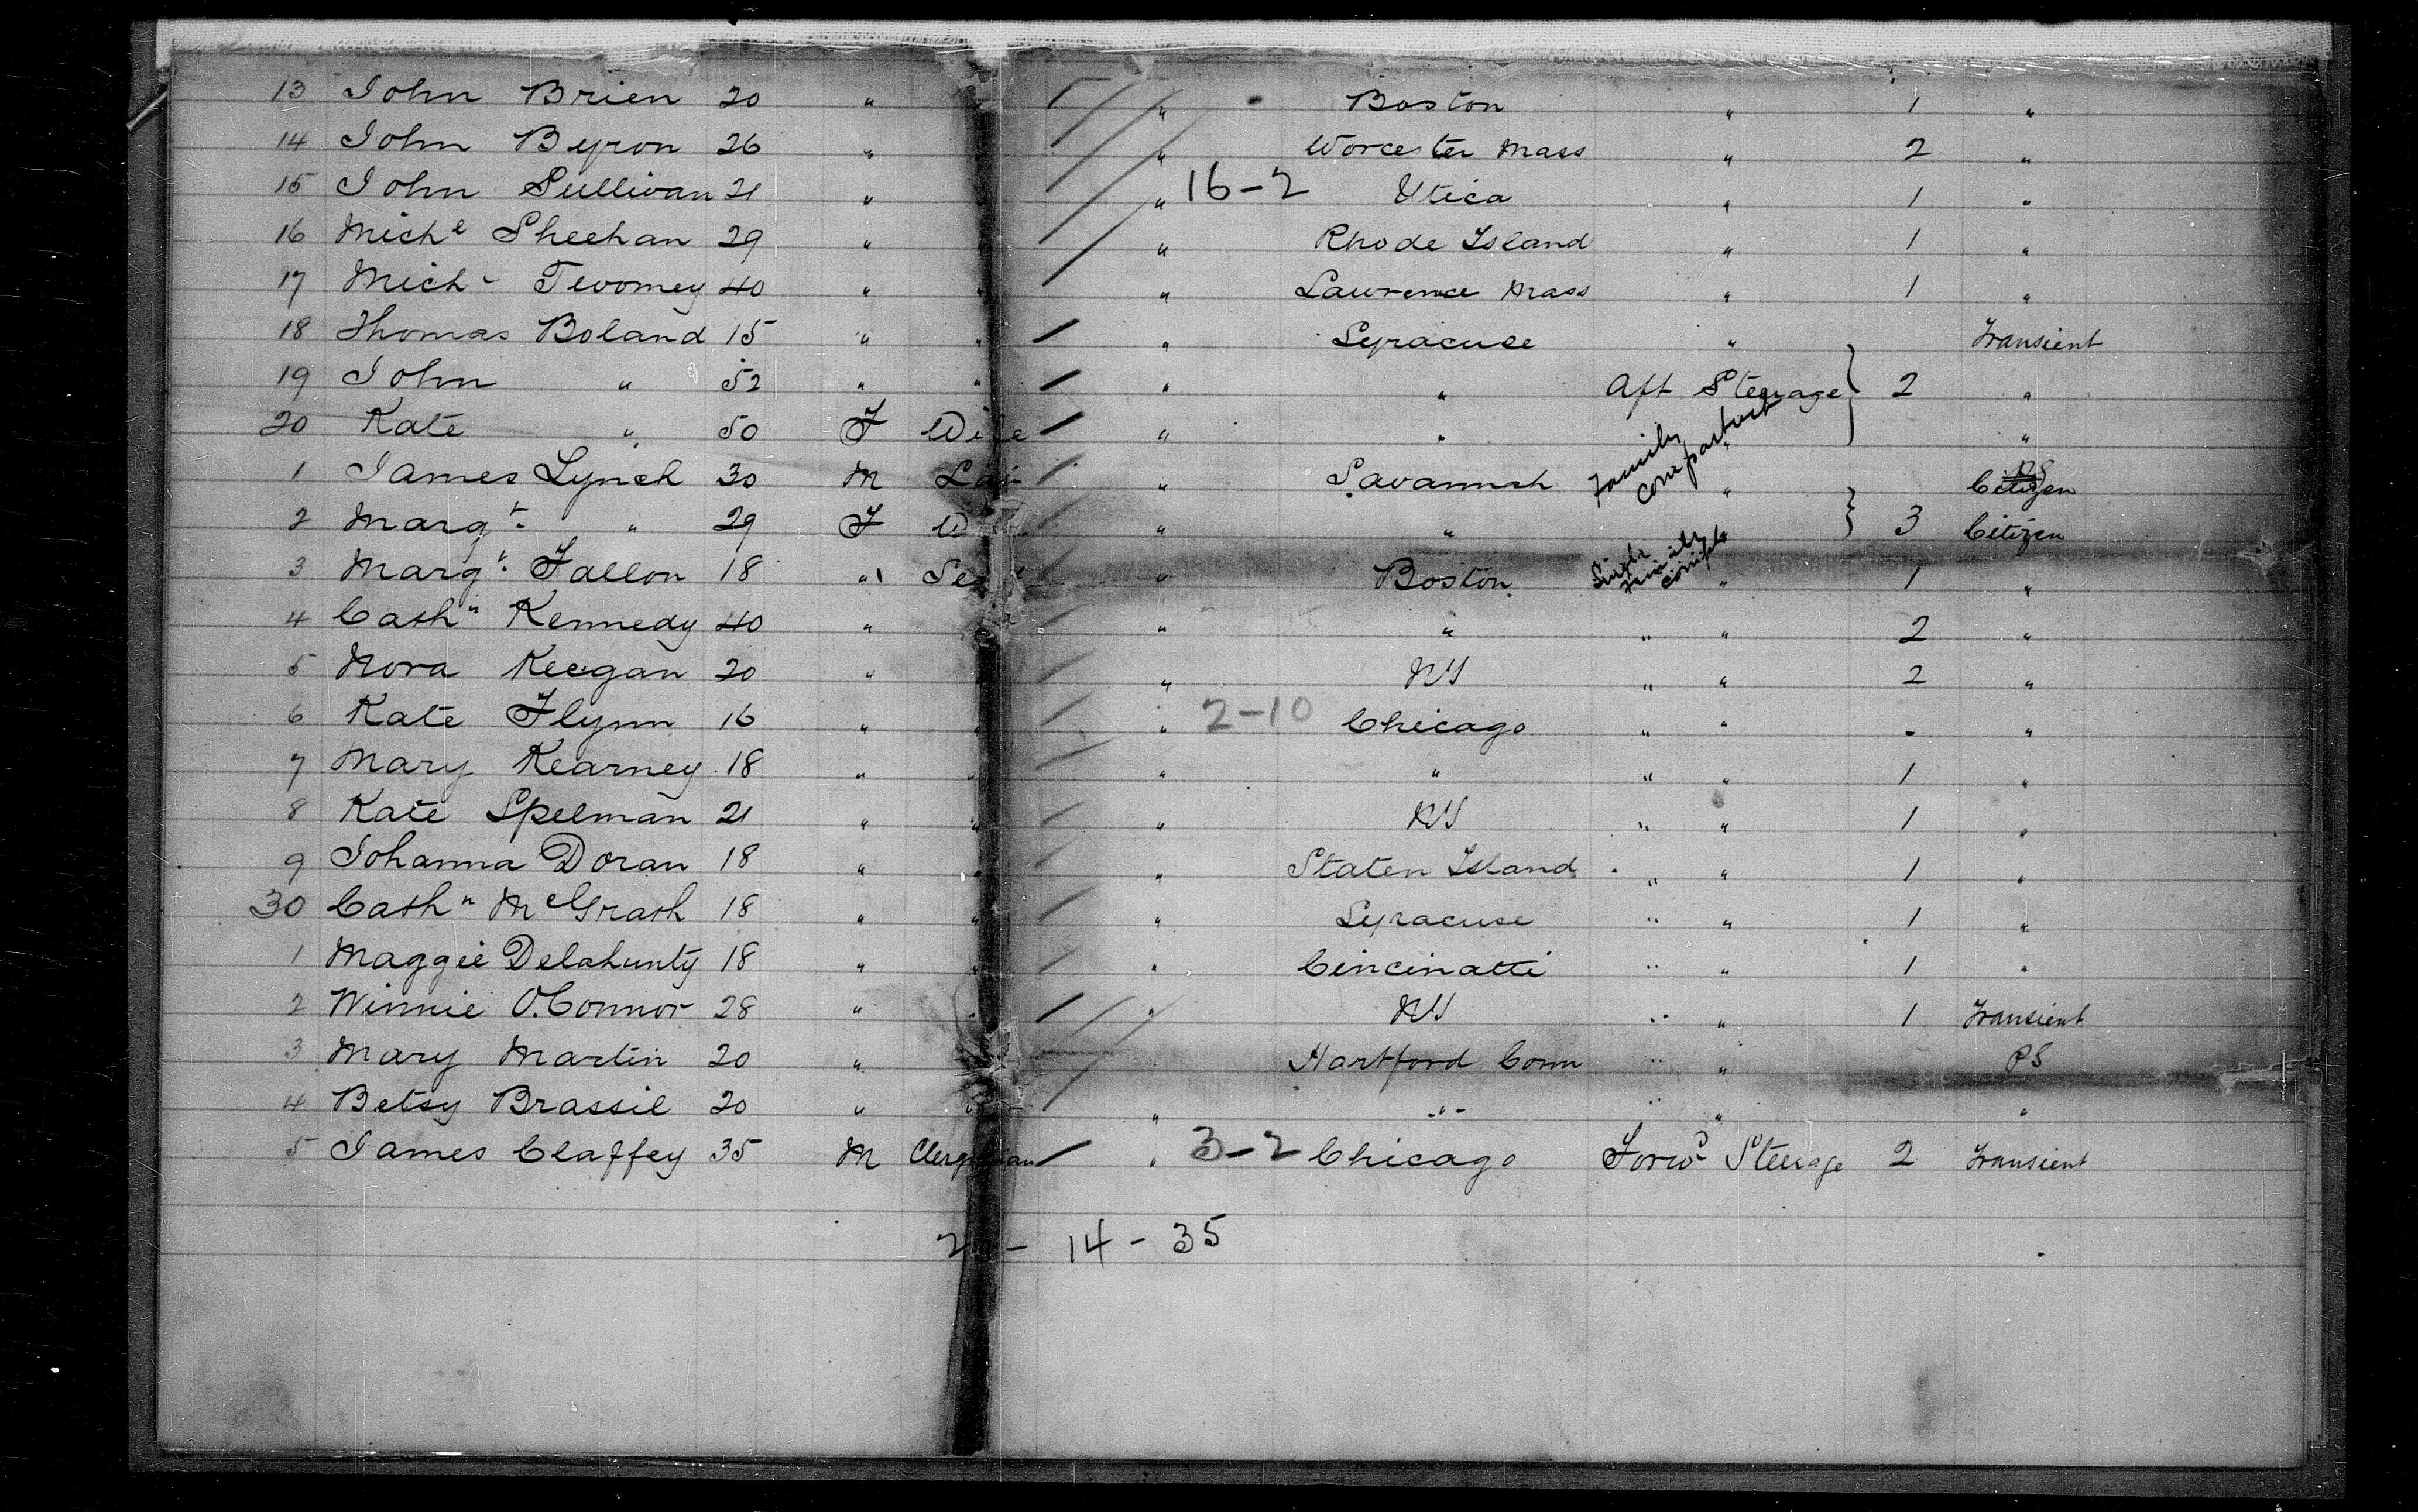 13 John Brien 20 " " Boston " 1 "
14 John Byron 26 " " Worcester Mass " 2 "
15 John Sullivan 21 " " 16-2 Utica " 1 "
16 Michl Sheehan 29 " " Rhode Island " 1 "
17 Michl Twomey 40 " " " Lawrence Mass " 1 "
18 Thomas Boland 15 " " " Syracuse " Transient
19 John " 52 " " " " Aft Steerage } 2 "
20 Kate " 50 F Wife " " " "
Family compartment
1 James Lynch 30 M Lab " Savannah " Citizen
2 Margt. " 29 F W " " } 3 Citizen
3 Margt. Fallon 18 " " Boston Single " 1 "
4 Cathn Kennedy 40 " " " " " 2 "
5 Nora Keegan 20 " " NY " " 2 "
6 Kate Flynn 16 " " " 2-10 Chicago " " - "
7 Mary Kearney 18 " " " " " " 1 "
8 Kate Spelman 21 " " " NY " " 1 "
9 Johanna Doran 18 " " " Staten Island " " 1 "
30 Cathn McGrath 18 " " " Syracuse " " 1 "
1 Maggie Delahunty 18 " " " Cincinatti " " 1 "
2 Winnie O.Connor 28 " " " NY " " 1 Transient
3 Mary Martin 20 " Hartford Conn " " PS
4 Betsy Brassil 20 " " " " " " "
5 James Claffey 35 M Clergyman " 3-2 Chicago Forwd Steerage 2 Transient
- 14 - 35